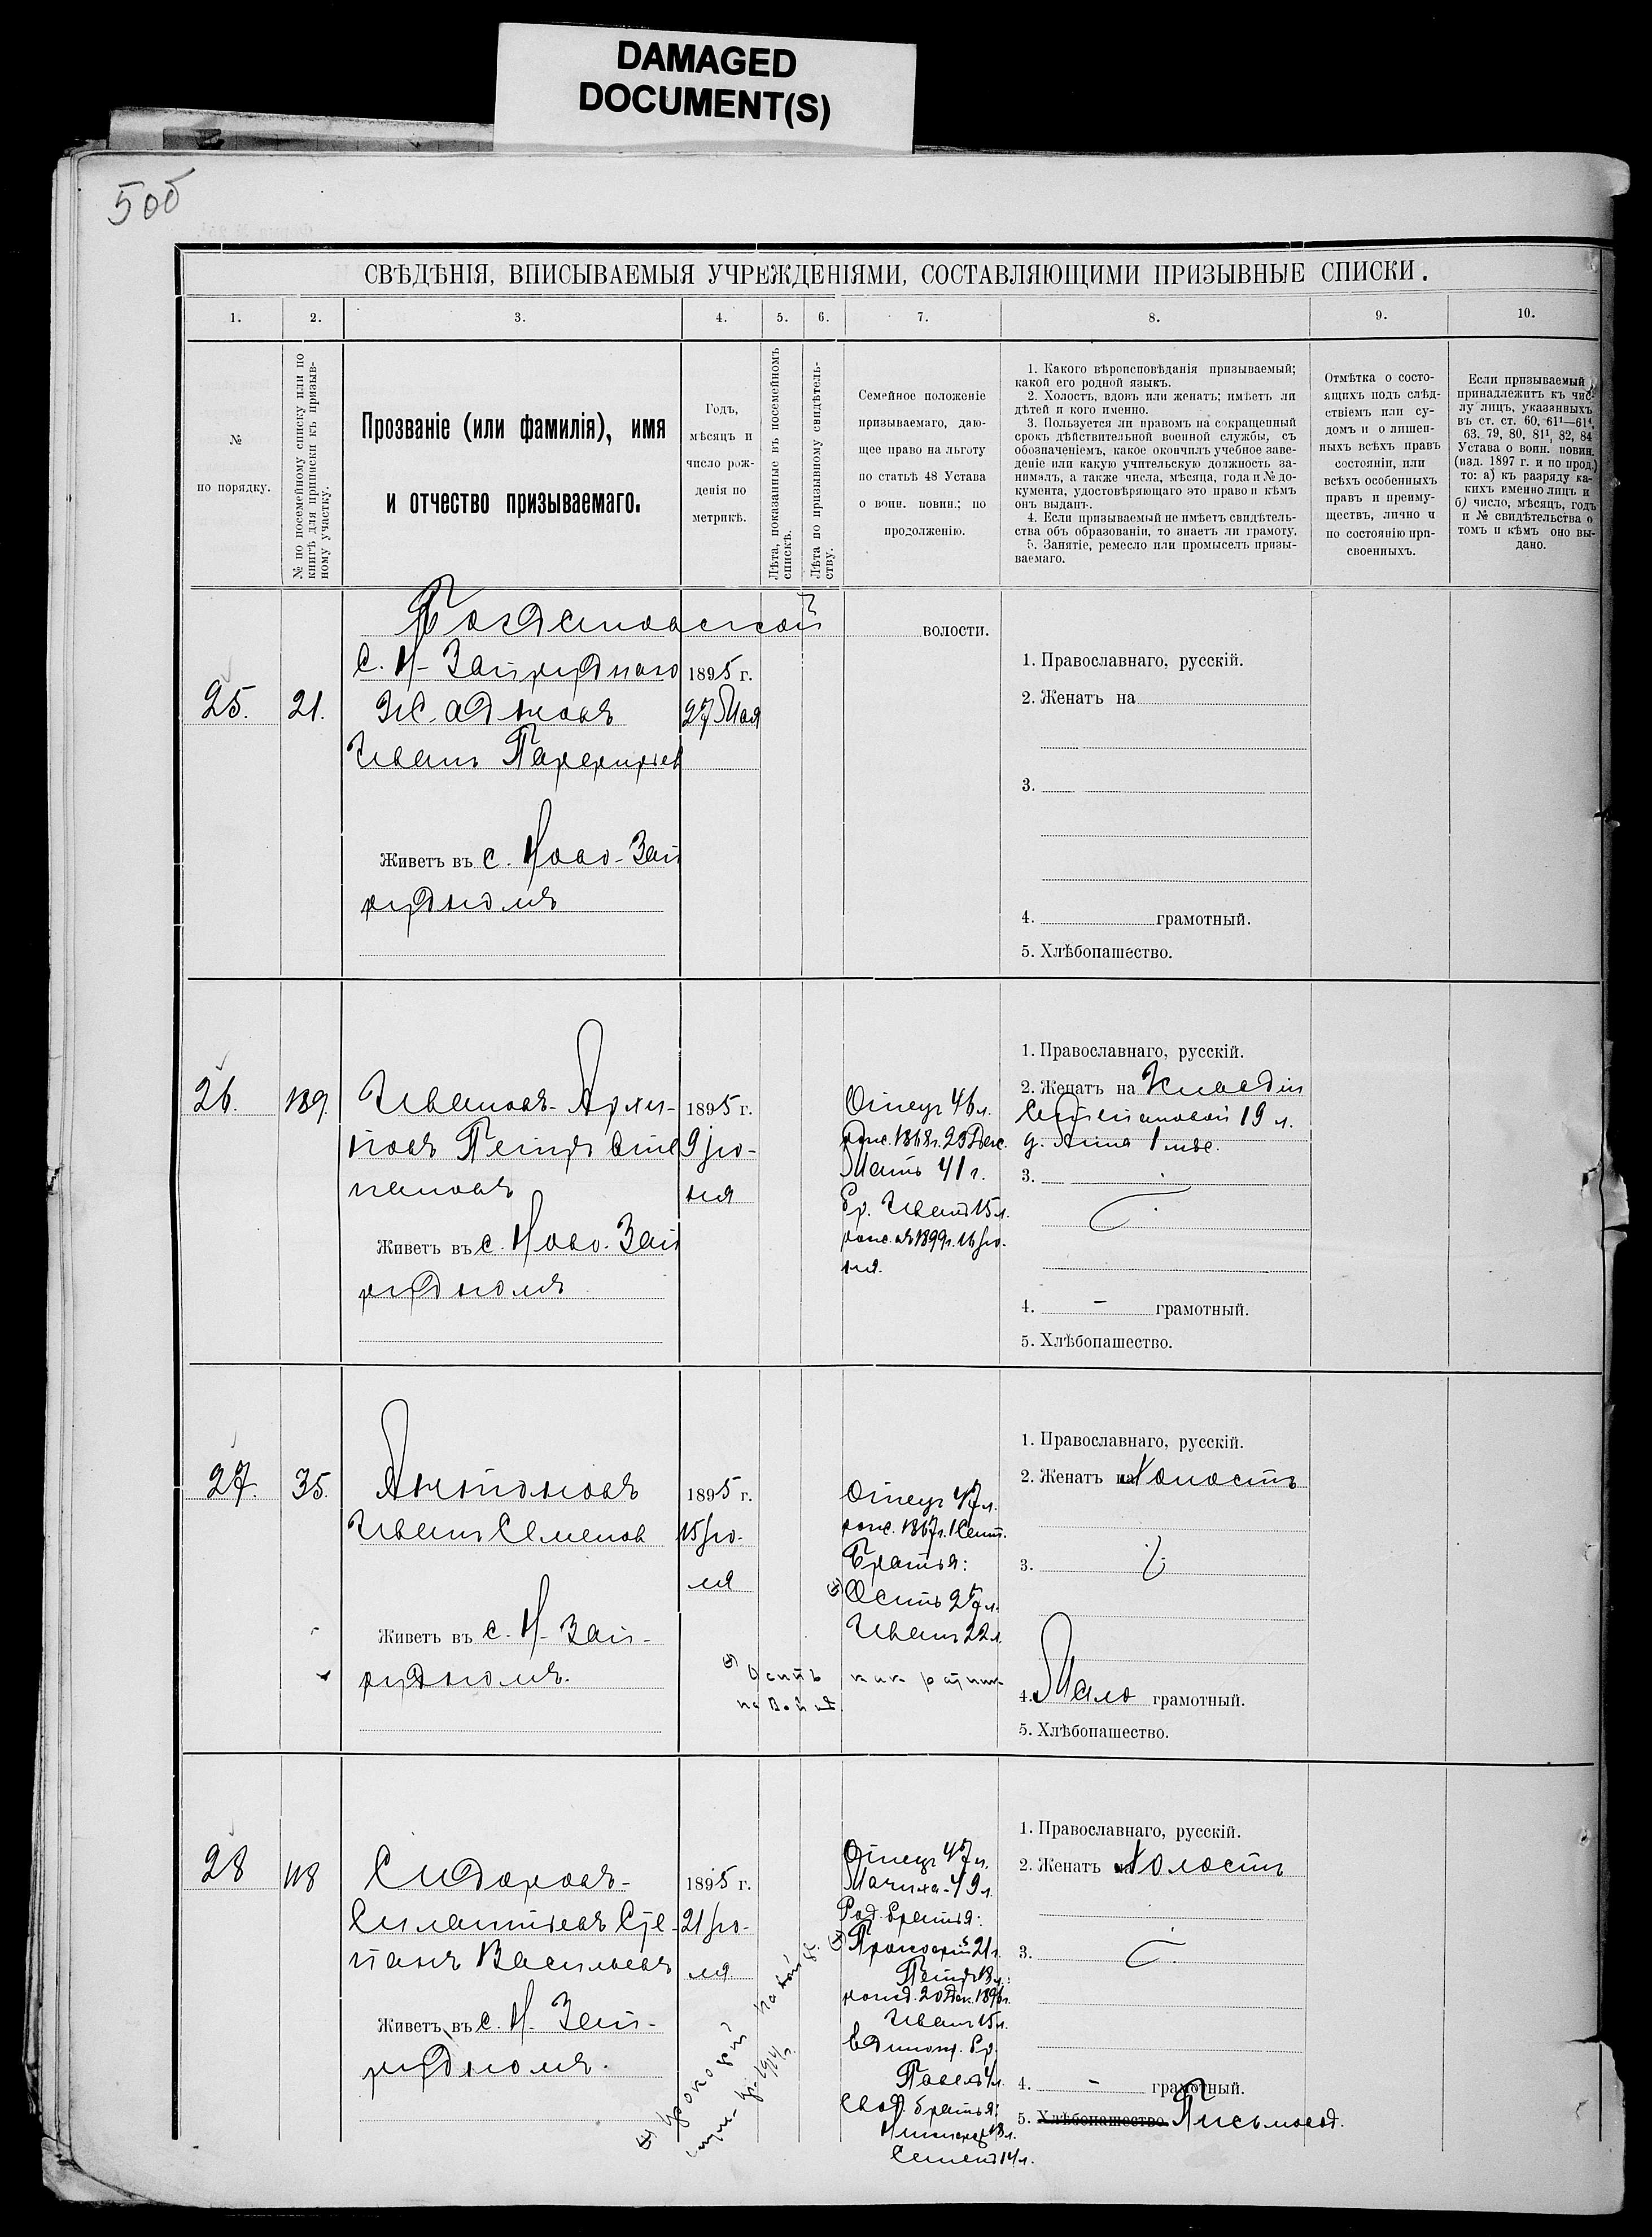 DAMAGED
DOCUMENT(S)
50б
СВѢДѢНІЯ, ВПИСЫВАЕМЫЯ УЧРЕЖДЕНІЯМИ, СОСТАВЛЯЮЩИМИ ПРИЗЫВНЫЕ СПИСКИ.
1. 2. 3. 4. 5. 6. 7. 8. 9. 10.
№
по порядку.
№ по посемейному списку или по
книгѣ для приписки къ призыв-
ному участку.
Прозваніе (или фамилія), имя
и отчество призываемаго.
Годъ,
мѣсяцъ и
число рож-
денія по
метрикѣ.
Лѣта, показанные въ посемейномъ
спискѣ.
Лѣта по призывному свидѣтель-
ству.
Семейное положеніе
призываемаго, даю-
щее право на льготу
по статьѣ 48 Устава
о воин. повин.; по
продолженію.
1. Какого вѣроисповѣданія призываемый;
какой его родной языкъ.
2. Холостъ, вдовъ или женатъ; имѣетъ ли
дѣтей и кого именно.
3. Пользуется ли правомъ на сокращенный
срокъ дѣйствительной военной службы, съ
обозначеніемъ, какое окончилъ учебное заве-
деніе или какую учительскую должность за-
нималъ, а также числа, мѣсяца, года и № до-
кумента, удостовѣряющаго это право и кѣмъ
онъ выданъ.
4. Если призываемый не имѣетъ свидѣтель-
ства объ образованіи, то знаетъ ли грамоту.
5. Занятіе, ремесло или промыселъ призы-
ваемаго.
Отмѣтка о состо-
ящихъ подъ слѣд-
ствіемъ или су-
домъ и о лишен-
ныхъ всѣхъ правъ
состоянія, или
всѣхъ особенныхъ
правъ и преиму-
ществъ, лично и
по состоянію при-
своенныхъ.
Если призываемый
принадлежитъ къ чис-
лу лицъ, указанныхъ
въ ст. ст. 60, 61¹—61⁴,
63, 79, 80, 81¹, 82, 84
Устава о воин. повин.
(изд. 1897 г. и по прод.)
то: а) къ разряду ка-
кихъ именно лицъ и
б) число, мѣсяцъ, годъ
и № свидѣтельства о
томъ и кѣмъ оно вы-
дано.
Богдановской волости.
25. 21.
С. Н-Зайруднаго
Жадновъ
Иванъ
1895 г.
27 Мая
Живетъ въ с. Ново-Зай
рудномъ
1. Православнаго, русскій.
2. Женатъ на
3.
4. грамотный.
5. Хлѣбопашество.
26. 189.
Ивановъ-Архи-
повъ Петръ Сте
пановъ
1895 г.
9 Ію-
ня
Живетъ въ с. Ново-Зай
рудномъ
Отецъ 46 л.
рож. 1868 г. 29 Дек.
Мать 41 г.
Бр. Иванъ 15 л.
рож. въ 1899 г. 16 Ію-
ня.
1. Православнаго, русскій.
2. Женатъ на Клавдіи
Степановой 19 л.
д. Анна 1 мѣс.
3.
4. - грамотный.
5. Хлѣбопашество.
27. 35.
Антоновъ
Иванъ Семенов
1895 г.
15 Ію-
ля
Живетъ въ с. Н-Зай-
рудномъ.
Отецъ 47 л.
рож. 1867 г. 1 Сент.
Братья:
Осипъ 27 л.
Иванъ 22 л.
Осипъ
на войнѣ.
1. Православнаго, русскій.
2. Женатъ на Холостъ
3.
4. Мало грамотный.
5. Хлѣбопашество.
28 118
Сидоровъ-
Силантьевъ Сте-
панъ Васильевъ
1895 г.
21 Ію-
ля
Живетъ въ с. Н. Зай-
рудномъ.
Отецъ 47 л.
Мачиха-49 л.
Род. братья:
Прокофій 21 г.
Петръ 18 л.:
рожд. 20 Дек. 1896 г.
Иванъ 15 л.
Единокр. бр.
Павелъ 4 г.
Свод. братья:
18 л.
Семенъ 14 л.
Прокофій на войнѣ.
1914 г.
1. Православнаго, русскій.
2. Женатъ на Холостъ
3.
4. - грамотный.
5. Хлѣбопашество. Письмовод.